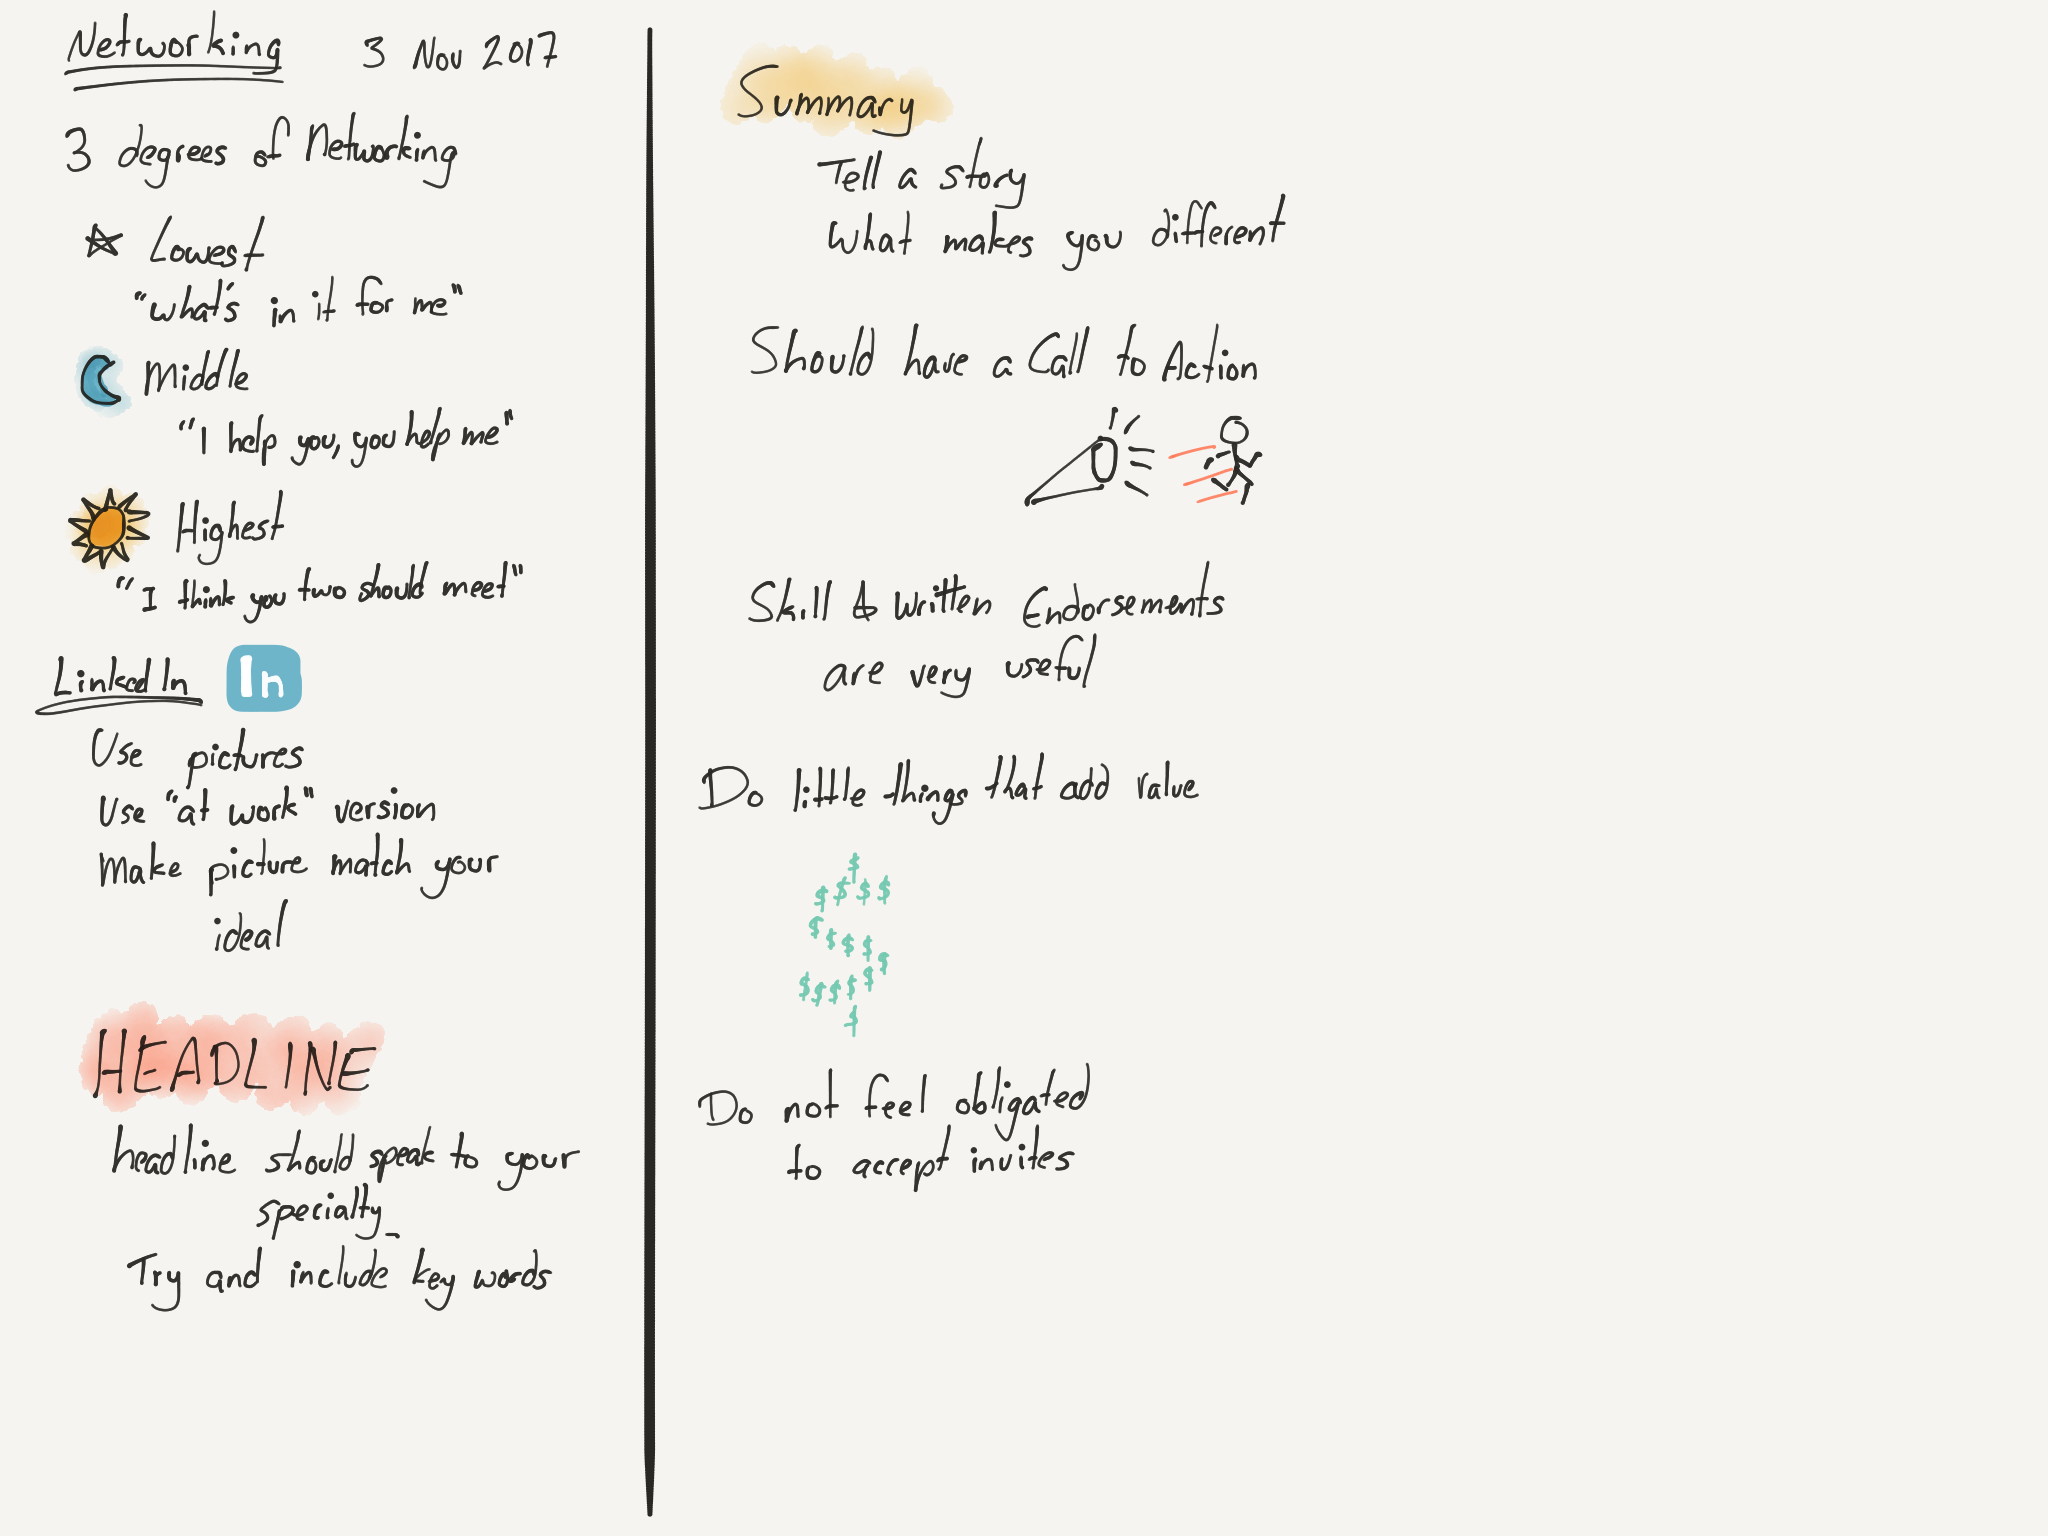 Networking 3 Nov 2017
3 degrees of Networking
Lowest
"what's in it for me"
Middle
"I help you, you help me"
Highest
"I think you two should meet"
LinkedIn In
Use pictures
Use "at work" version
Make picture match your
ideal
HEADLINE
headline should speak to your
specialty
Try and include key words
Summary
Tell a story
What makes you different
Should have a Call to Action
Skill & Written Endorsements
are very useful
Do little things that add value
$
$ $ $ $
$
$ $ $
$
$ $ $ $ $
$
Do not feel obligated
to accept invites